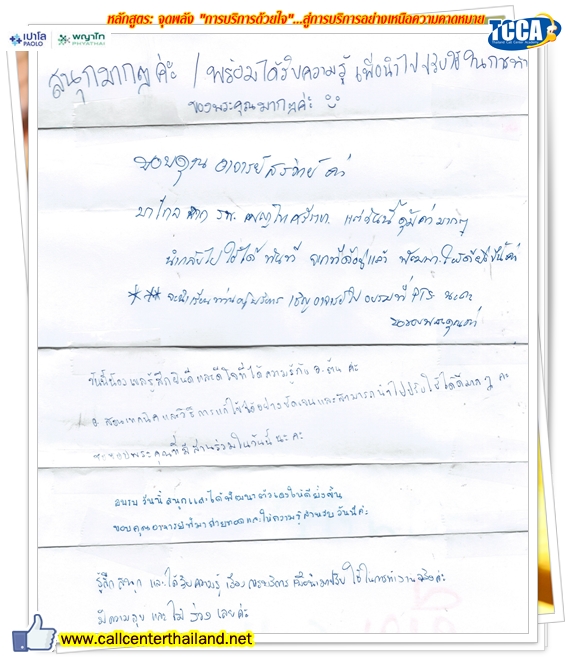 หลักสูตร: จุดพลัง "การบริการด้วยใจ"...สู่การบริการอย่างเหนือความคาดหมาย
เปาโล PAOLO พญาไท PHYATHAI
TCCA
สนุกมากๆ ค่ะ / พร้อมได้รับความรู้ เพื่อนำไปปรับใช้ในการทำ
ขอบพระคุณมากๆค่ะ
ขอบคุณ อาจารย์ ค่า
มาไกล จาก รพ. พญาไทศรีราชา แต่วันนี้คุ้มค่ามากๆ
นำกลับไปใช้ได้ทันที จากที่ดีอยู่แล้ว พัฒนาให้ดียิ่งขึ้นค่า
*** จะนำเรียนท่านผู้บริหาร เชิญอาจารย์ไปอบรมที่ PTS นะคะ
ขอบพระคุณค่า
วันนี้ รู้สึกยินดีและดีใจที่ได้ความรู้กับ อ. ต้น ค่ะ
อ. สอนเทคนิคและวิธีการแก้ไขได้อย่างชัดเจนและสามารถนำไปปรับใช้ได้ดีมากๆ ค่ะ
ขอบพระคุณที่มีส่วนร่วมในวันนี้นะคะ
อบรมวันนี้สนุกและได้พัฒนาตัวเองให้ดียิ่งขึ้น
ขอบคุณอาจารย์ที่มาถ่ายทอดและให้ความรู้สำหรับวันนี้ค่ะ
รู้สึกสนุก และได้รับความรู้ เรื่องการบริการ เพื่อนำมาปรับใช้ในการทำงานจริงค่ะ
มีความสุข และ ไม่ง่วงเลยค่ะ
www.callcenterthailand.net